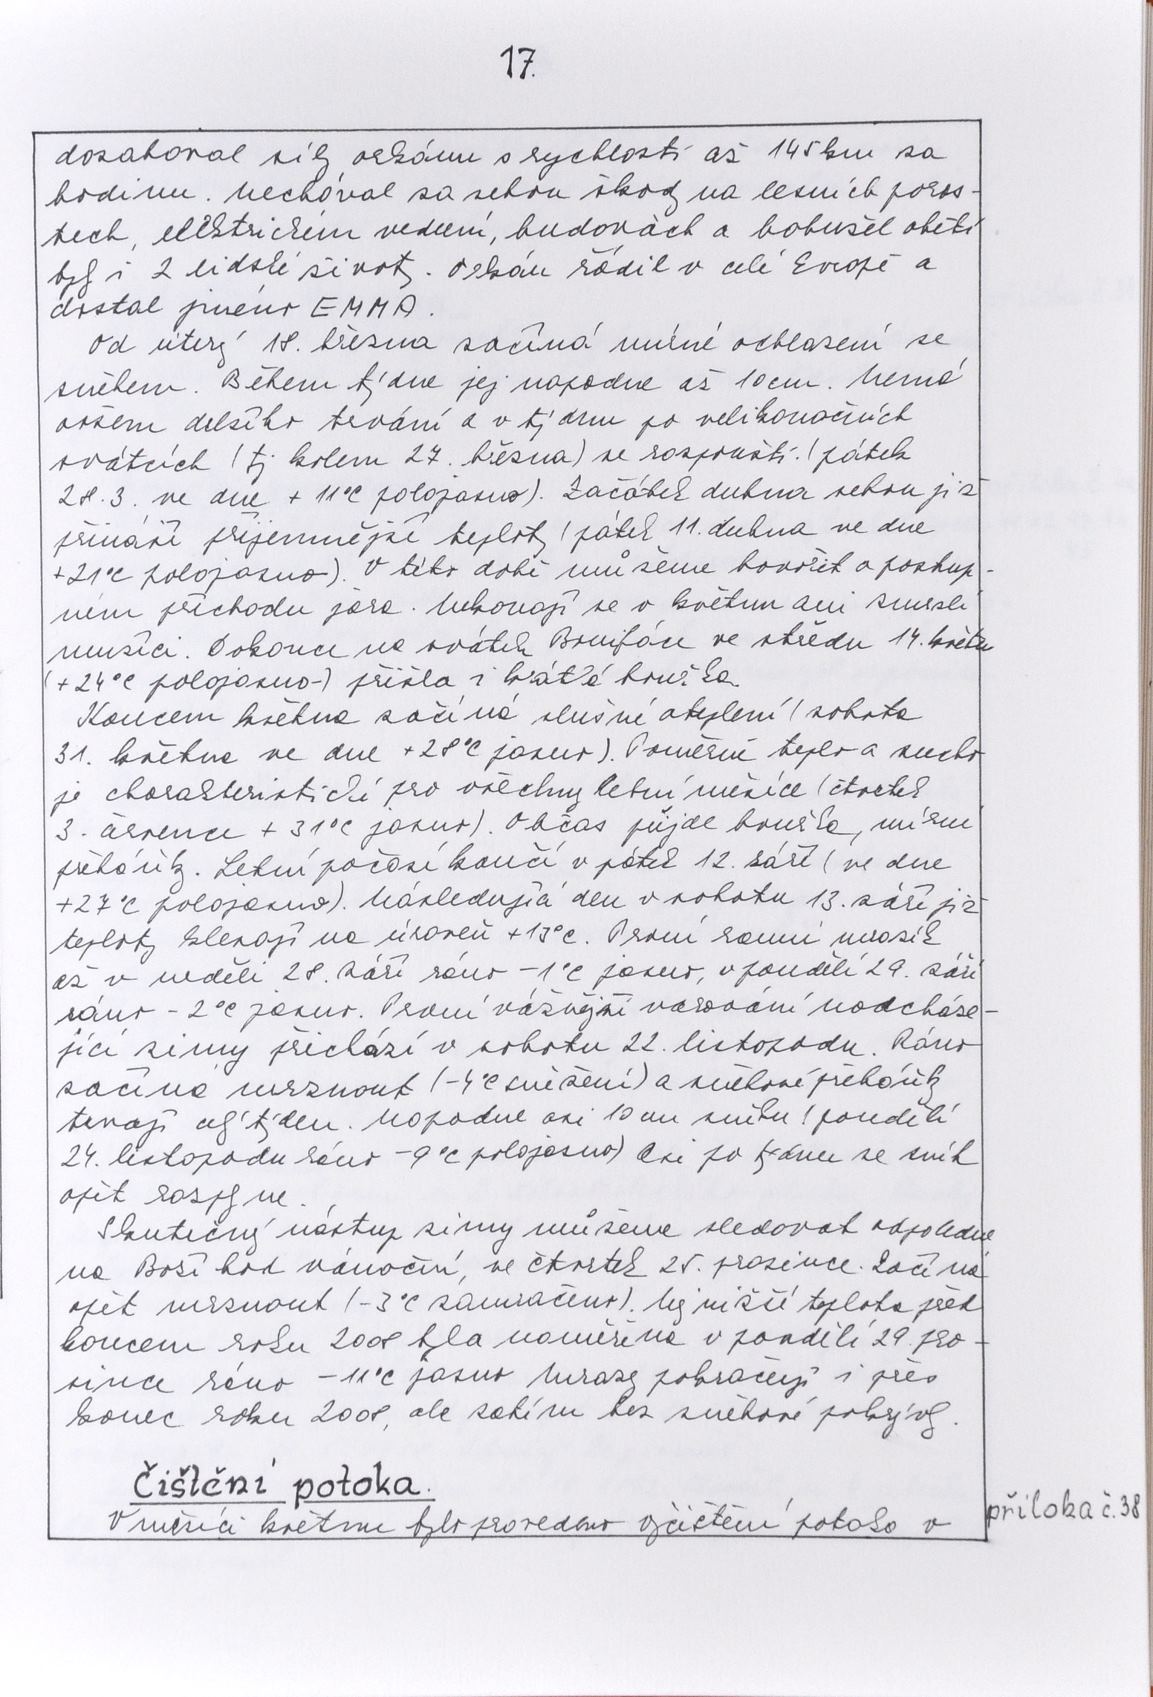 17.
dosahoval síly orkánu o rychlosti až 145 km za
hodinu. Nechával za sebou škody na lesních poros-
tech, elektrickém vedení, budovách a bohužel obětí
byly i 2 lidské životy. Orkán řádil v celé Evropě a
dostal jméno EMMA.
Od úterý 18. března začíná mírné ochlazení se
sněhem. Během týdne jej napadne až 10cm. Nemá
ovšem delšího trvání a v týdnu po velikonočních
svátcích (tj kolem 27. března) se rozpouští. (pátek
28.3. ve dne + 11°C polojasno). Začátek dubna sebou již
přináší příjemnější teploty (pátek 11. dubna ve dne
+21°C polojasno). V této době můžeme hovořit o postup-
ném příchodu jara. Nekonají se v květnu ani zmrzlí
mužíci. Dokonce na svátek Bonifáce ve středu 14. května
(+24°C polojasno-) přišla i krátká bouřka.
Koncem května začíná slušné oteplení (sobota
31. května ve dne +28°C jasno). Poměrně teplo a sucho
je charakteristické pro všechny letní měsíce (čtvrtek
3. července + 31°C jasno). Občas přijde bouřka, mírné
přeháňky. Letní počasí končí v pátek 12. září (ve dne
+27°C polojasno). Následující den v sobotu 13. září již
teploty klesají na úroveň +13°C. První ranní mrazík
až v neděli 28. září ráno -1°C jasno, v pondělí 29. září
ráno - 2°C jasno. První vážnější varování nadcháze-
jící zimy přichází v sobotu 22. listopadu. Ráno
začíná mrznout (-4°C sněžení) a sněhové přeháňky
trvají celý týden. Napadne asi 10 cm sněhu (pondělí
24. listopadu ráno -9°C polojasno) Asi po týdnu se sníh
opět rozplyne.
Skutečný nástup zimy můžeme sledovat odpoledne
na Boží hod vánoční, ve čtvrtek 25. prosince. Začíná
opět mrznout (-3°C zamračeno). Nejnižší teplota před
koncem roku 2008 byla naměřena v pondělí 29. pro-
since ráno -11°C jasno Mrazy pokračují i přes
konec roku 2008, ale zatím bez sněhové pokrývky.
Čištění potoka.
V měsíci květnu bylo provedeno vyčištění potoka v
příloha č. 38